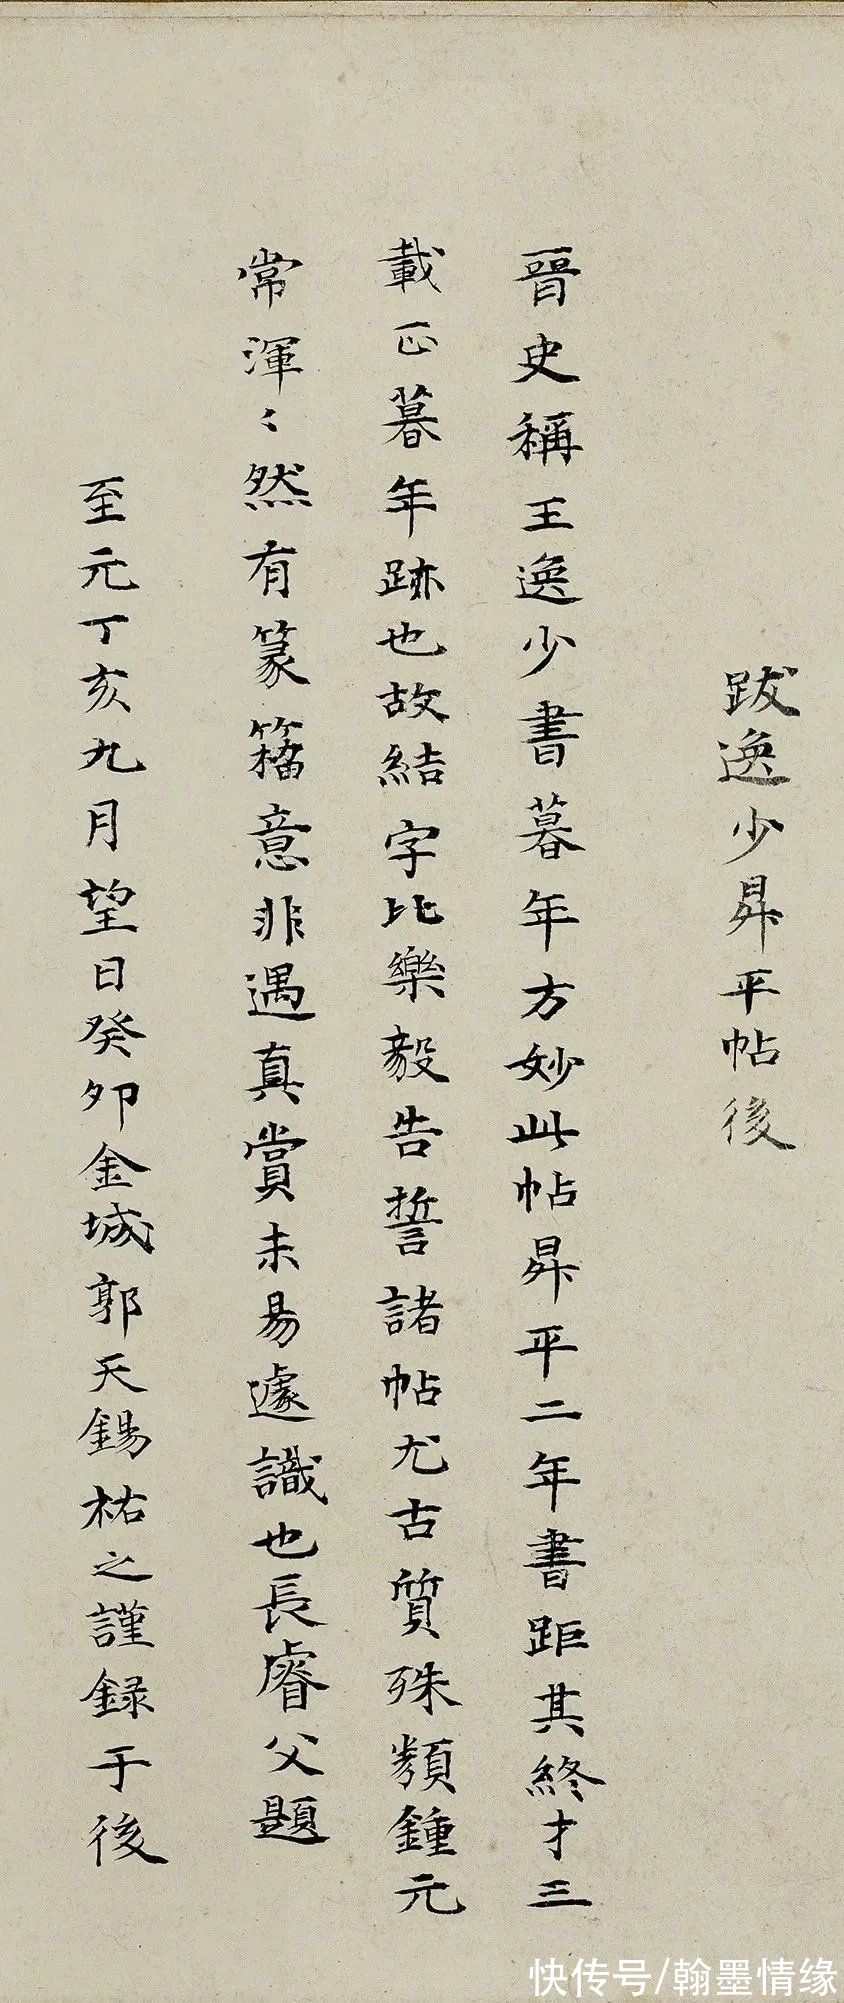 跋逸少昇平帖後
晉史稱王逸少書暮年方妙此帖昇平二年書距其終才三
載正暮年跡也故結字比樂毅告誓諸帖尤古質殊類鍾元
常渾〻然有篆籀意非遇真賞未易遽識也長睿父題
至元丁亥九月望日癸卯金城郭天錫祐之謹録于後
快传号/翰墨情缘